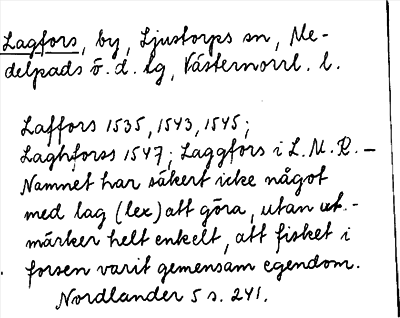 Lagfors, by, Ljustorps sn, Me-
delpads ö. d. lg, Västernorrl. l.
Laffors 1535, 1543, 1545;
Laghforss 1547; Laggfors i L.M.R. –
Namnet har säkert icke något
med lag (lex) att göra, utan ut-
märker helt enkelt, att fisket i
forsen varit gemensam egendom.
Nordlander 5 s. 241.